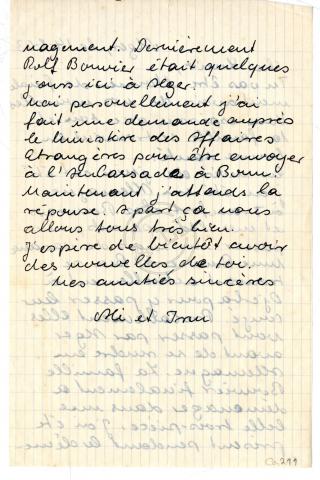 nagement. Dernièrement
Rolf Bouvier était quelques
jours ici à Alger.
Moi personellement j'ai
fait une demande auprès
le Ministère des Affaires
étrangères pour être envoyer
à l'Ambassade à Bonn.
Maintenant j'attends la
réponse. Apart ça nous
allons tous très bien.
J'espère de bientôt avoir
des nouvelles de toi.
Mes amitiés sincères
Ali et